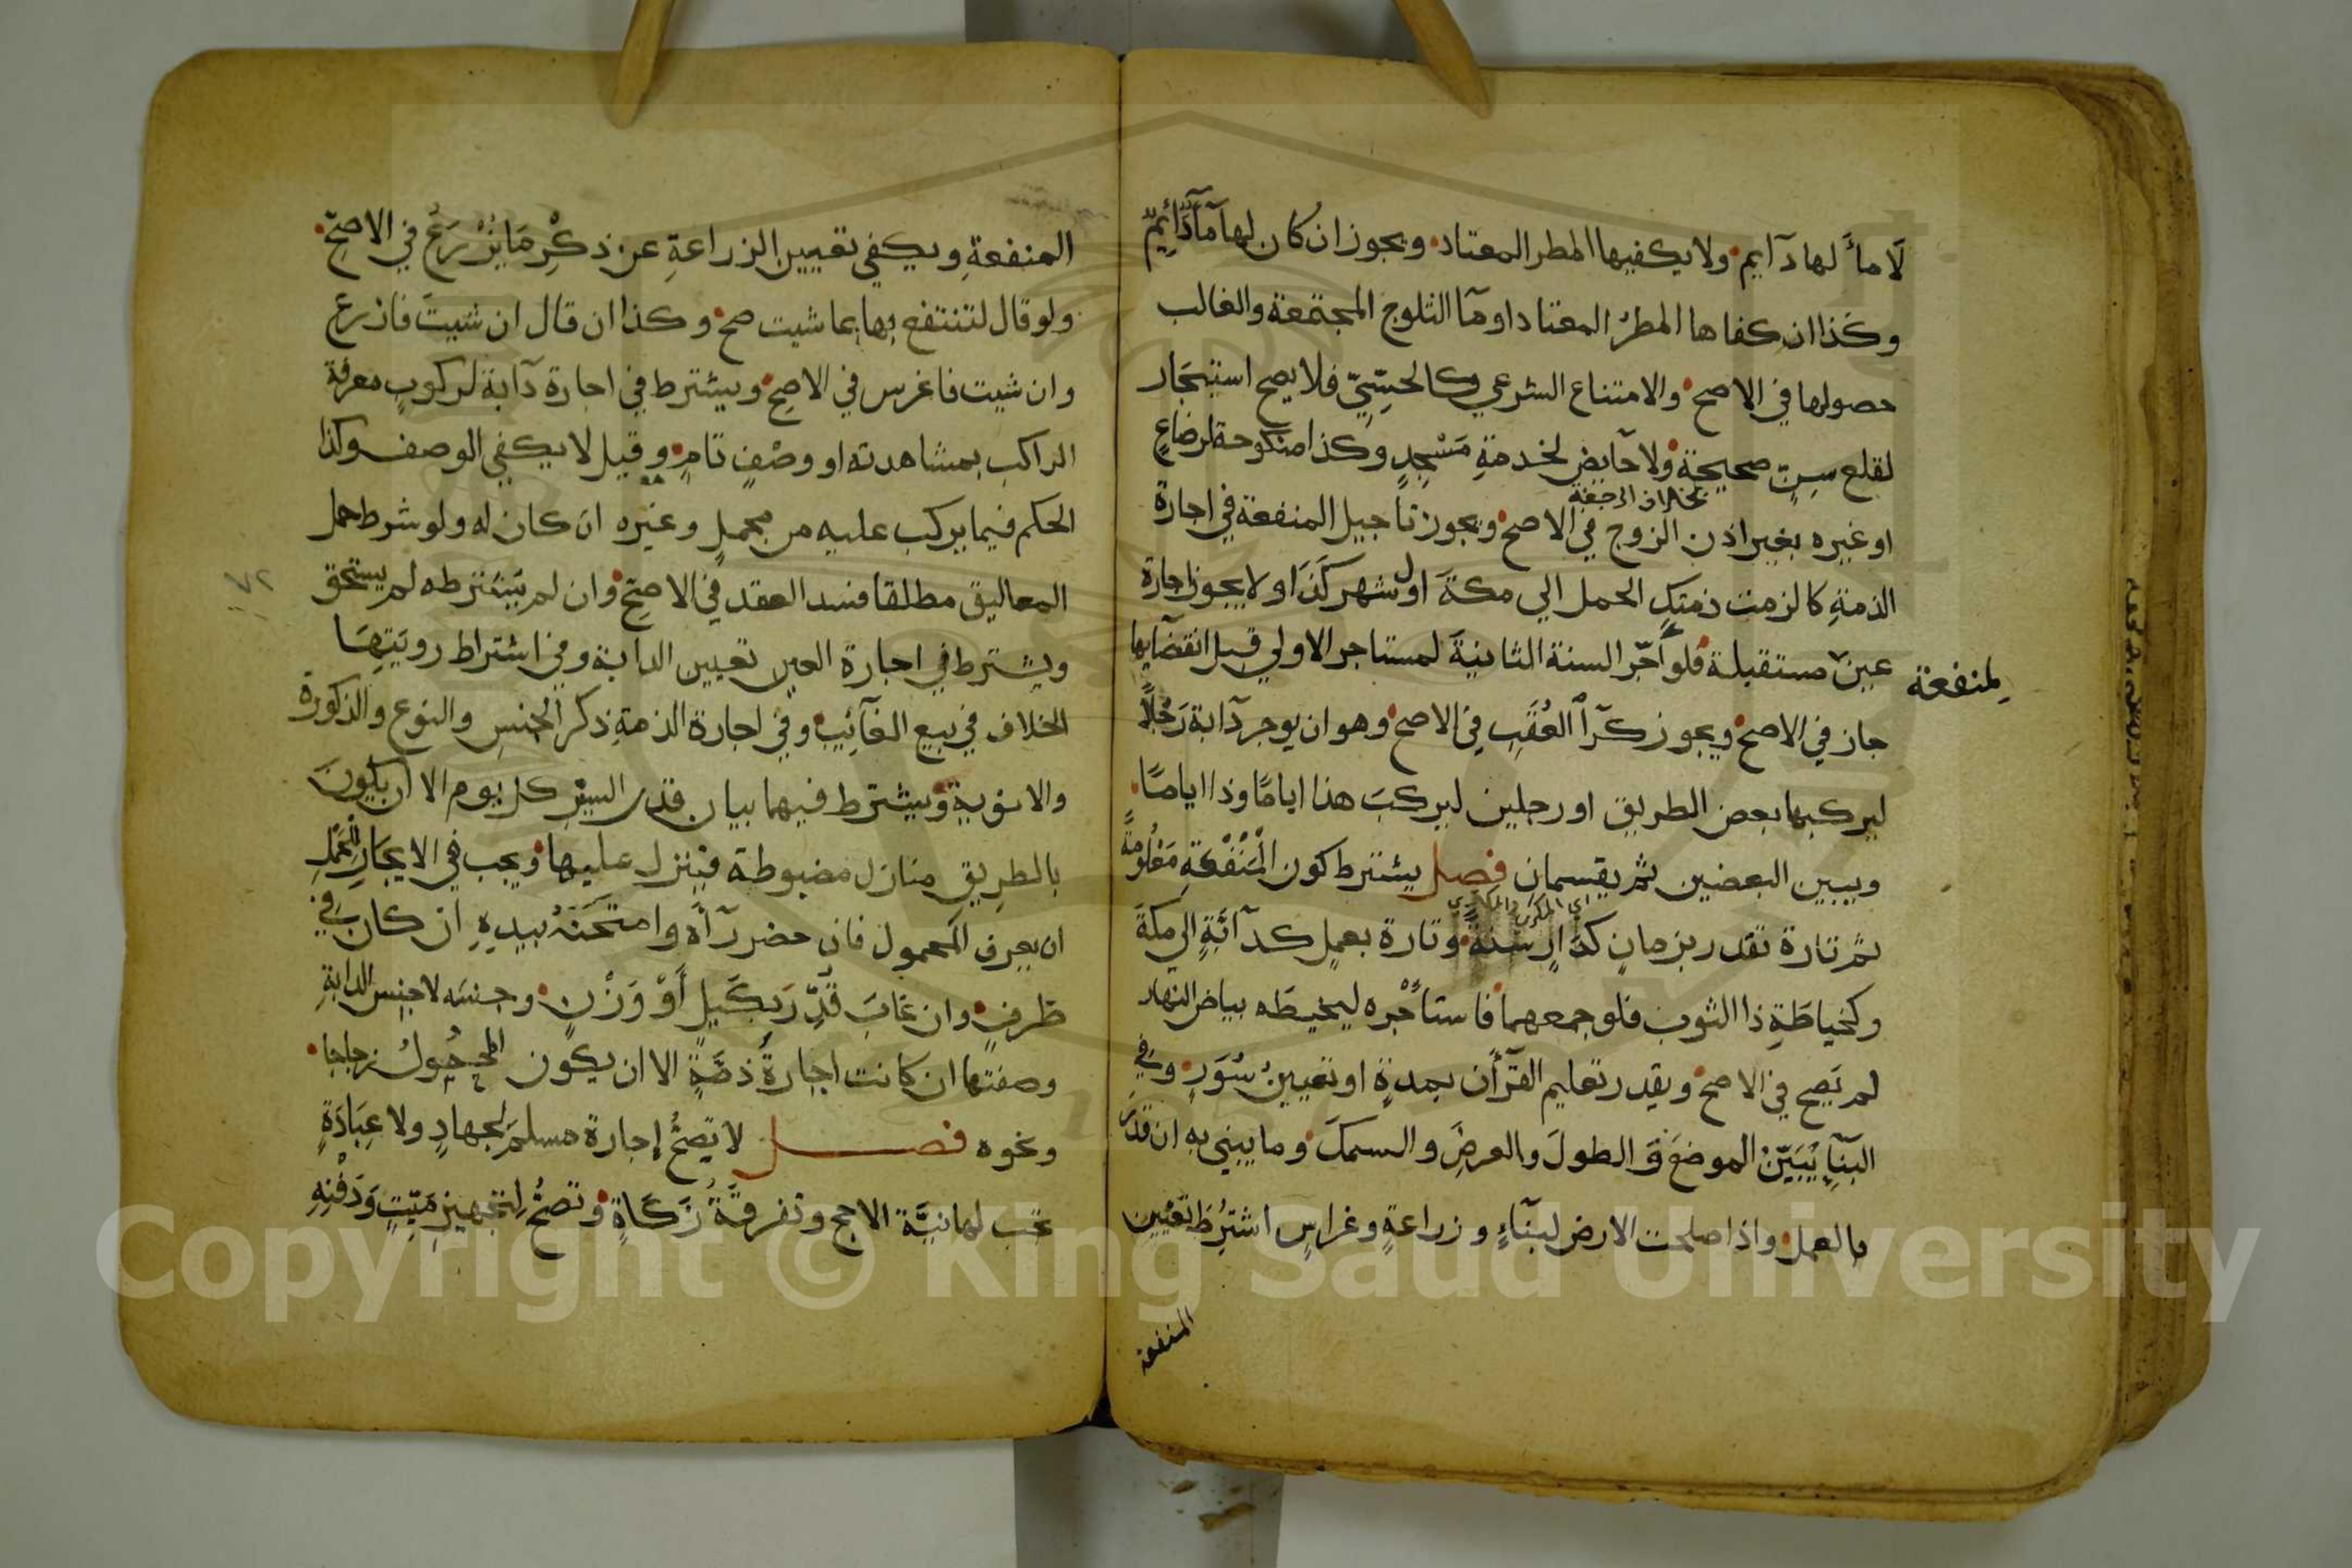 لَا مآءً لها دآيم ولا يكفيها المطر المعتاد ويجوز ان كان لها مآءٌ دَائمٌ
وكَذا ان كفاها المطرُ المعتاد او مآ الثلوج المجتمعة والغالب
حصولها في الاصح والامتناع الشرعي كالحِسِّيّ فلا يصح استيجَار
لقلع سِنٍّ صحيحة ولا حآيض لخدمةِ مَسْجِدٍ وكذا منكوحة لرضاعٍ
او غيره بغير اذن الزوج في الاصح ويجوز تاجيل المنفعة في اجارة
الذمةِ كالزمت ذمتك الحمل الي مكةَ اول شهر كَذَا ولا يجوز اجارة
عين مستقبلة فلو أَجّر السنة الثانيةَ لمستاجر الاولي قبل انقضآيها
لِمنفعة
جاز في الاصح ويجوز كرآء العُقَبِ في الاصح وهو ان يوجر دآبة رَجُلًا
ليركبها بعض الطريق او رجلين ليركبَ هذا ايامًا وذا ايامًا
ويبين البعضين ثم يقتسمان فصل يشترط كون المَنْفَعَةِ مَعْلُومَةً
ثم تارة تقدر بزمانٍ كدَارٍ سَنَةً وتارة بعملٍ كدآبّةٍ الي مكةَ
وكخياطَةِ ذا الثوب فلو جمعهما فاستأجْره ليخيطه بياض النهار
لم يَصح في الاصح ويقدر تعليم القرآن بمدةٍ او تعيينُ سُوَرٍ وفي
البنَآءِ يُبَيِّنُ الموضعَ وَ الطولَ والعرضَ والسمكَ وما يبني به ان قدّرَ
بالعمل واذا صلحت الارض لبنآءٍ وزراعةٍ وغراسٍ اشتُرِطَ تعْيين
المنفعة
المنفعةِ ويكفي تعيين الزراعةِ عن ذكْرِ مَا يُزْرَعُ في الاصحِّ
ولو قال لتنتفع بها بما شيت صح وكذا ان قال ان شيتَ فازرع
وان شيت فاغرس في الاصحِ ويشترط في اجارة دآبة لركوبٍ معرفة
الراكب بمشاهدته او وصْفٍ تامٍ وقيل لا يكفي الوصف وكذا
الحكم فيما يركب عليه من محملٍ وغيره ان كان له ولو شرط حمل
المعاليق مطلقا فسد العقد في الاصحِّ وان لم يَشترطه لم يستحق
٧٢
ويشترط في اجارة العين تعيين الدابة وفي اشتراط رويَتِهَا
الخلاف في بيع الغآئِب وفي اجارة الذمةِ ذكر الجنسِ والنوع والذكورة
والانوثية ويشترط فيهما بيان قدر السيْرِ كل يوم الا ان يكونَ
بالطرِيق منازل مضبوطة فينزل عليها ويجب في الايجَارِ للحَمْلِ
ان يعرف المحمول فان حضر رآهُ وامتحَنَهُ بيدِهِ ان كان في
ظرفٍ وان غابَ قُدِّرَ بكَيلٍ أَوْ وَزْنٍ وجنسَه لا جنس الدابةِ
وصفتها ان كانت اجارةُ ذمَّةٍ الا ان يكون المحمُولُ زجاجا
ونحوه فصل لا تصحُّ إجارة مسلمٍ لجهادٍ ولا عِبَادَةٍ
تجب لها نيَّة الا حج وتفرقَةُ زَكَاةٍ وتصحُّ لِتجهيزِ مَيّتٍ وَدَفْنِهِ
Copyright © King Saud University